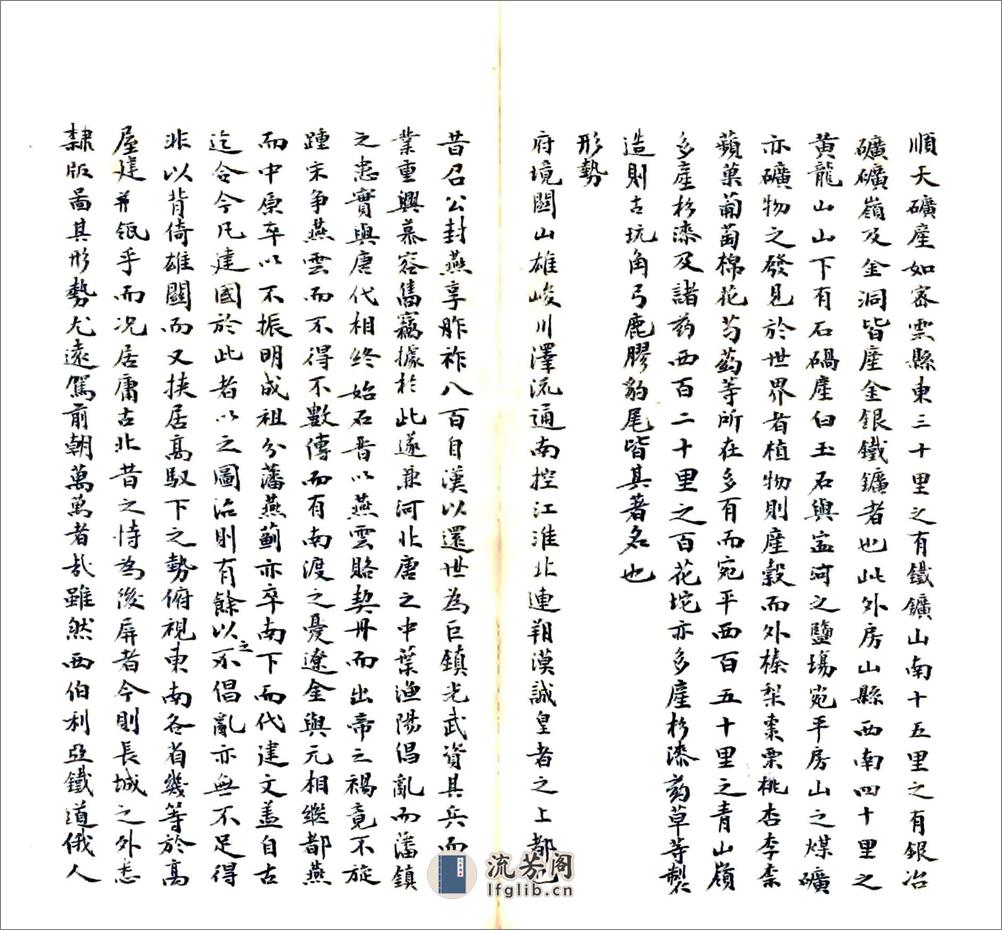 順天礦產如密雲縣東三十里之有鐵鑛山南十五里之有銀冶
礦礦嶺及金洞皆產金銀鐵鑛者也此外房山縣西南四十里之
黃龍山山下有石碢產白玉石與寶河之鹽塲宛平房山之煤礦
亦礦物之發見於世界者植物則產穀而外榛梨棗栗桃杏李柰
蘋菓葡萄棉花芍药等所在多有而宛平西百五十里之青山嶺
多產杉漆及諸葯西百二十里之百花坨亦多產杉漆葯草等製
造則古玩角弓鹿膠豹尾皆其著名也
形勢
府境關山雄峻川澤流通南控江淮北連朔漠誠皇者之上都也
昔召公封燕享胙祚八百自漢以還世為巨鎮光武資其兵而
業重興慕容雋竊據於此遂兼河北唐之中葉漁陽倡亂而藩鎮
之患實與唐代相終始石晋以燕雲賂契丹而出帝之禍竟不旋
踵宋争燕雲而不得不數傳而有南渡之憂遼金與元相繼都燕
而中原卒以不振明成祖分藩燕薊亦卒南下而代建文盖自古
迄今今凡建國於此者以之圖治則有餘以之不倡亂亦無不足得
非以背倚雄關而又挟居高馭下之勢俯視東南各省幾等於高
屋建瓴乎而况居庸古北昔之恃為後屏者今則長城之外悉
隸版啚其形勢尤遠駕前朝萬萬者哉雖然西伯利亞鐵道俄人
流芳阁
lfglib.cn